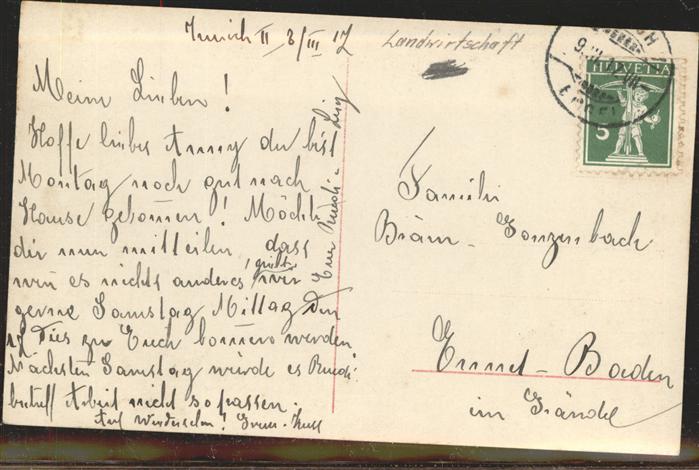 Zürich II 8/III 17
Meine Lieben!
Hoffe liebes Anny du bist
Montag noch gut nach
Hause gekommen! Möchte
dir nun mitteilen, dass
wenn es nichts anderes gibt, wir
gerne Samstag Mittag den
17. dies zu Euch kommen werden.
Nächsten Samstag würde es Ruedi
betreff Arbeit nicht so passen.
Auf Wiedersehn! Gruss - Kuss
Euer Ruedi -
Landwirtschaft
HELVETIA
5
Familie
Bräm - Gonzenbach
Ennet-Baden
im Gründel